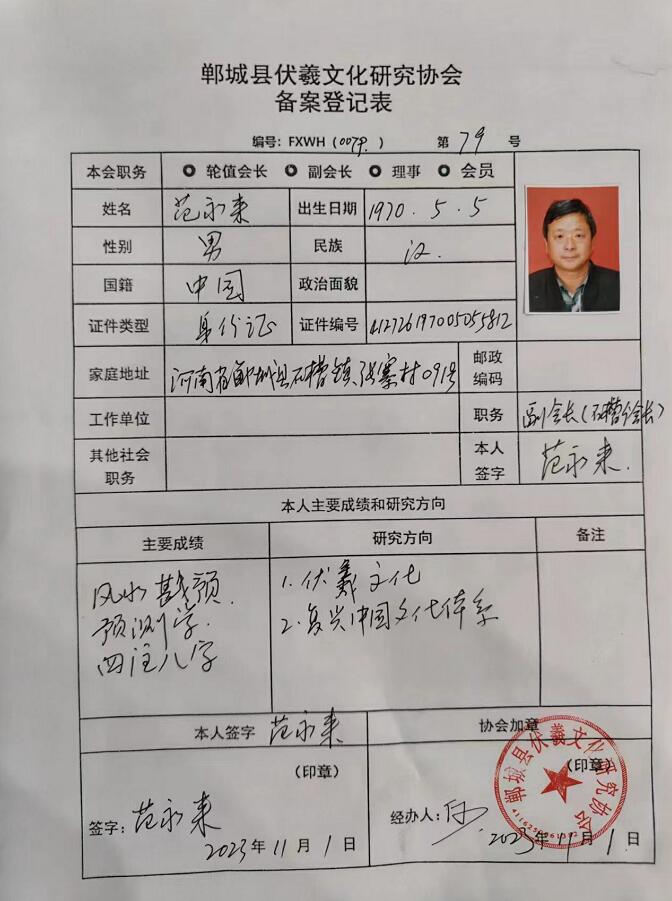 郸城县伏羲文化研究协会
备案登记表
编号: FXWH (0079.) 第 79 号
本会职务 轮值会长 副会长 理事 会员
姓名 范永来 出生日期 1970.5.5
性别 男 民族 汉.
国籍 中国 政治面貌
证件类型 身份证 证件编号 412726197005055812
家庭地址 河南省郸城县石槽镇张寨村091号 邮政编码
工作单位 职务 副会长(石槽分会长)
其他社会职务 本人签字 范永来.
本人主要成绩和研究方向
主要成绩 研究方向 备注
风水戡预. 1.伏羲文化
预测学. 2.复兴中国文化体系
四注八字
本人签字 范永来 协会加章
(印章) (印章)
签字: 范永来 经办人:
2023年11月1日 2023年11月1日
郸城县伏羲文化研究协会